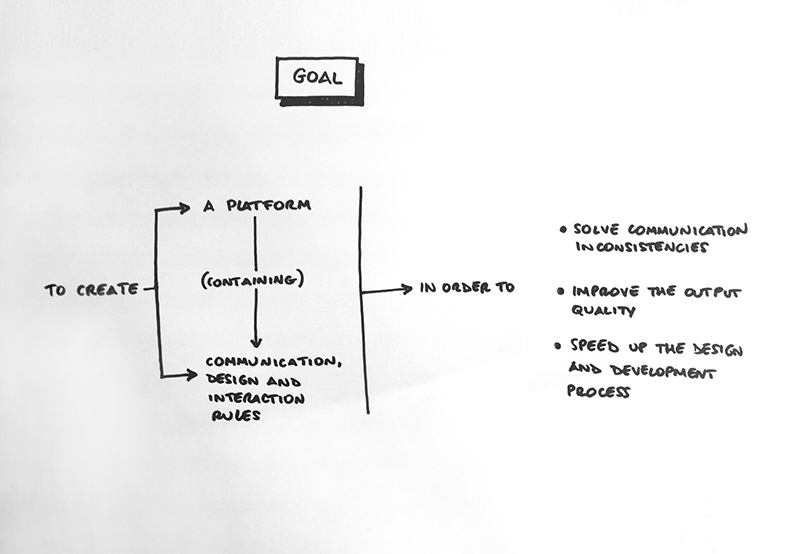 GOAL
TO CREATE
A PLATFORM
(CONTAINING)
COMMUNICATION,
DESIGN AND
INTERACTION
RULES
IN ORDER TO
• SOLVE COMMUNICATION
INCONSISTENCIES
• IMPROVE THE OUTPUT
QUALITY
• SPEED UP THE DESIGN
AND DEVELOPMENT
PROCESS